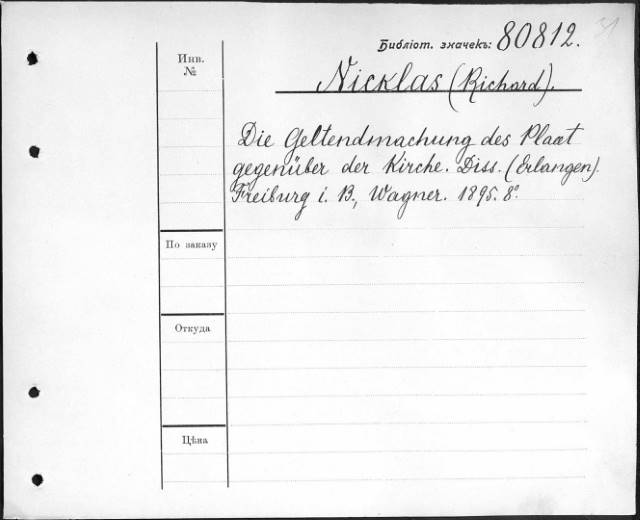 31
Библіот. значекъ: 80812.
Инв.
№
Nicklas (Richard).
Die Geltendmachung des Plaat
gegenüber der Kirche. Diss. (Erlangen).
Freiburg i. B., Wagner. 1895. 8°.
По заказу
Откуда
Цѣна